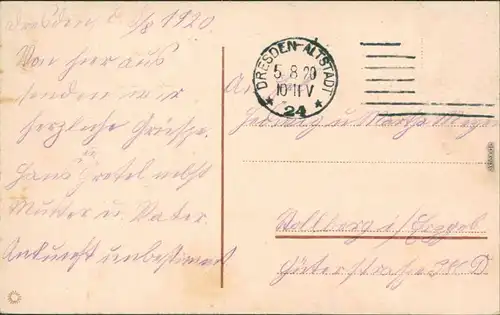 Dresden d. 5/8 1920.
Von hier aus
senden wir
herzliche Grüsse.
Hans u. Gretel nebst
Mutter u. Vater.
Ankunft unbestimmt.
DRESDEN-ALTSTADT
5.8.20
10-11V
* 24 *
An
Hedwig u. Martha
Stollberg i/Erzgeb.